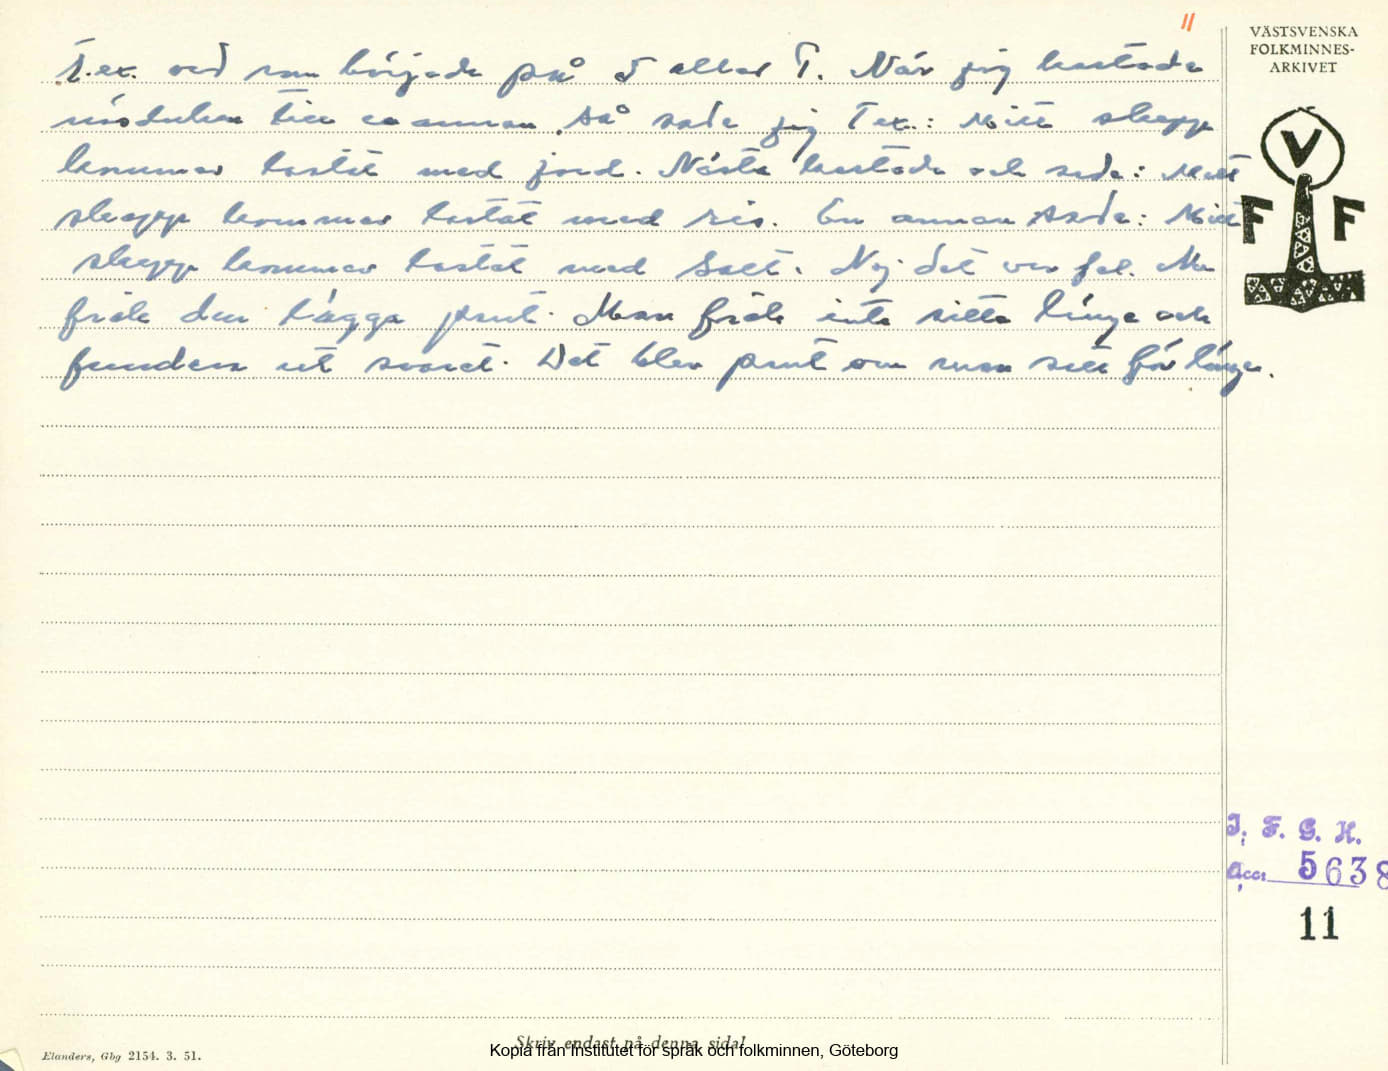 11
VÄSTSVENSKA
FOLKMINNES-
ARKIVET
T.ex. ord som började på S eller T. När jag kastade
nöduken till en annan, så sade jag T ex.: Mitt skepp
kommer lastat med jord. Nästa kastade och sade: Mitt
skepp kommer lastat med ris. En annan sade: Mitt
skepp kommer lastat med Salt. Nej det var fel. Nu
fick den lägga pant. Man fick inte sitta länge och
fundera ut svaret. Det blev pant om man satt för länge.
V
F F
I. F. G. H.
Acc. 5638
11
Skriv endast på denna sida!
Elanders, Gbg 2154. 3. 51.
Kopia från Institutet för språk och folkminnen, Göteborg